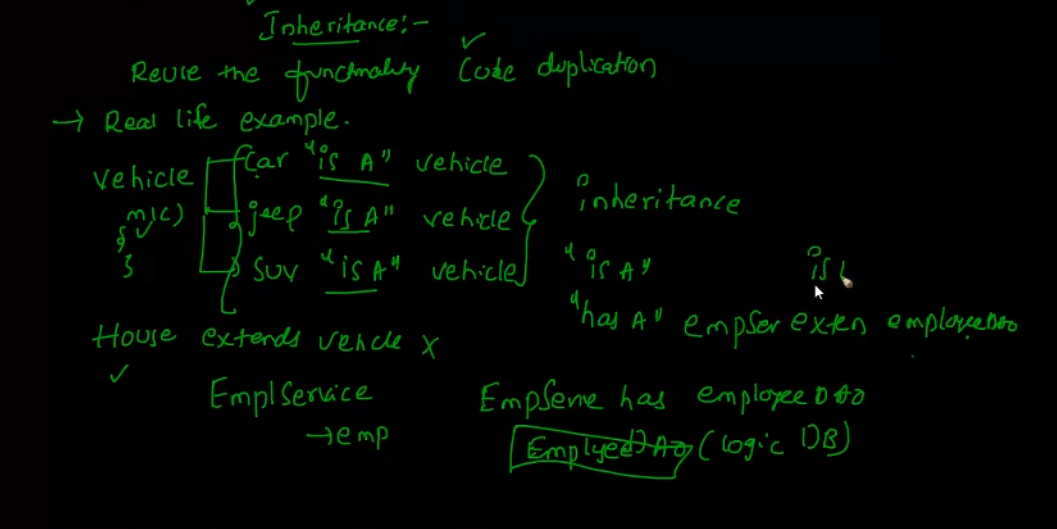 Inheritance:-
Reuse the functionality Code duplication
→ Real life example.
vehicle
m1()
{
}
Car "is A" vehicle
jeep "is A" vehicle
SUV "is A" vehicle
inheritance
"is A"
is
"has A" empSer exten employeeDAO
House extends vehicle X
EmplService
→emp
EmpServe has employee DAO
EmplyeeDAO (logic DB)